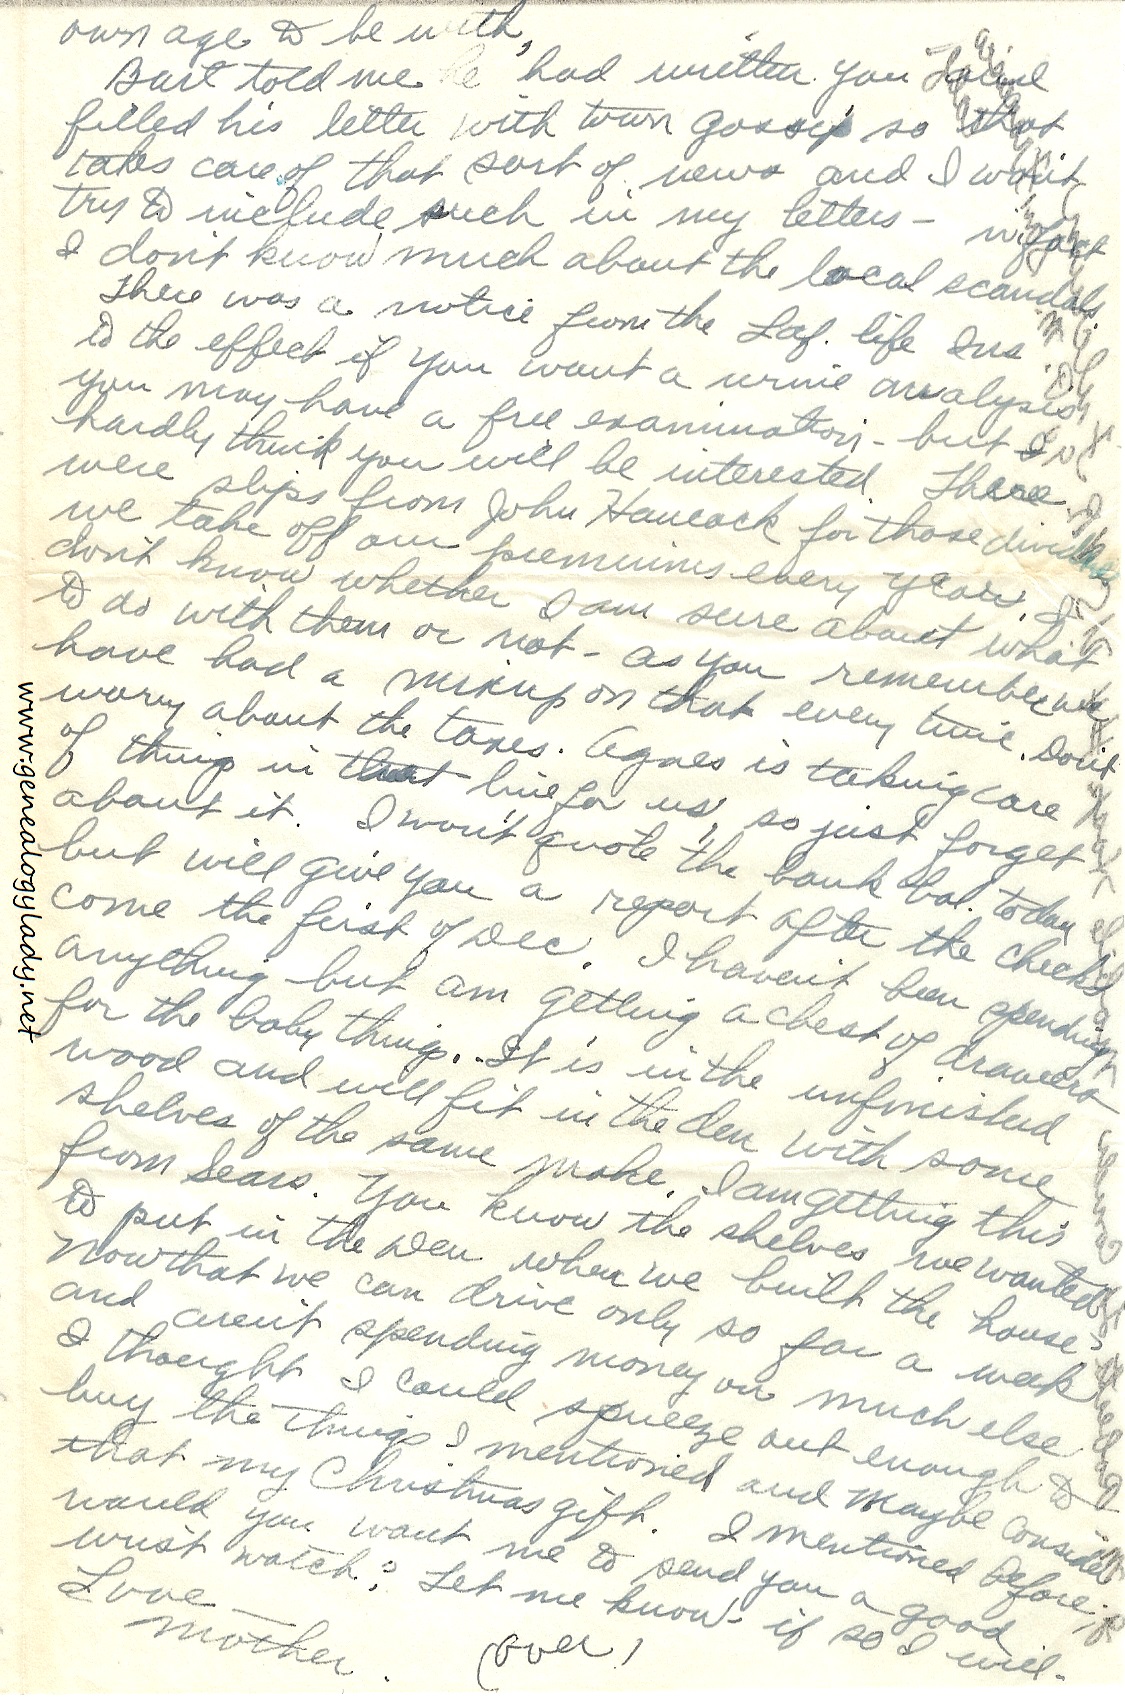 own age to be with,
Bart told me he had written you
filled his letter with town gossip so that
takes care of that sort of news and I won't
try to include such in my letters - in fact
I don't know much about the local scandals.
There was a notice from the Laf. life Ins
to the effect if you want a urine analysis
you may have a free examination - but I
hardly think you will be interested. There
were slips from John Hancock for those
we take off our premiums every year. I
don't know whether I am sure about what
to do with them or not - as you remember we
have had a mixup on that every time. Don't
worry about the taxes. Agnes is taking care
of things in that line for us, so just forget
about it. I won't quote the bank bal. today
but will give you a report after the checks
come the first of Dec. I haven't been spending
anything but am getting a chest of drawers
for the baby things. It is in the unfinished
wood and will fit in the den with some
shelves of the same make. I am getting this
from Sears. You know the shelves we wanted
to put in the Den when we built the house.
Now that we can drive only so far a week
and aren't spending money on much else
I thought I could squeeze out enough to
buy the things I mentioned and maybe consider
that my Christmas gift. I mentioned before,
would you want me to send you a good
wrist watch? Let me know - if so I will.
Love
Mother.
(over)
www.genealogylady.net